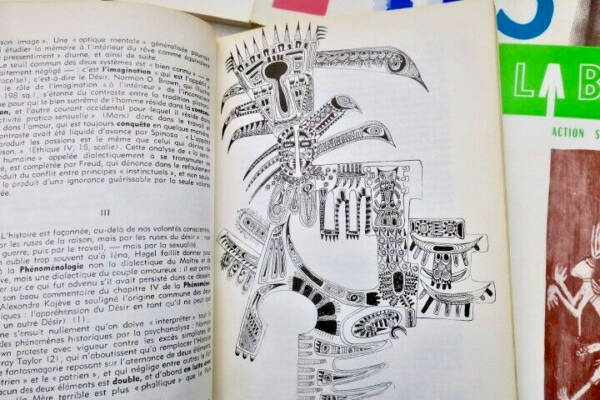 son-image ». Une « optique mentale » généralisée pourrait
i étudier la mémoire à l'intérieur du rêve comme équivalent
pressentiment » diurne, et ainsi de suite.
Le seuil commun des deux systèmes est « bien connu » —
aitement négligé — c'est l'imagination « qui est l'
acelse), c'est-à-dire le Désir. Norman O. Brown, qui
le rôle de l'imagination « à l'intérieur » de
198 sq.), s'étonne du contraste entre la tradition
ne pour qui le bien suprême de l'homme réside dans la
on, et l'autre courant occidental pour lequel il réside
ctivité pratico-sensuelle » (Marx) donc dans le travail
dans l'amour, qui est toujours conquête en quelque
contraste avait été liquidé d'avance par Spinoza : « L'appétit
produit les passions est le même que celui qui dérive
ison. » (Ethique IV, 18, scolie). Cette analyse de
humaine » appelée dialectiquement à se transmuter
est complétée par Freud, qui dénonce dans le refoulement
du conflit entre principes « instinctuels », et non
le produit d'une ignorance guérissable par la seule volonté
ée.
III
L'histoire est façonnée, au-delà de nos volontés conscientes,
par les ruses de la raison, mais par les ruses du désir :
guerre, puis par le travail, — mais par la sexualité.
n oublie trop souvent qu'à Iéna, Hegel faillit donner pour
à la Phénoménologie non la dialectique du Maître et
ve, mais une dialectique du couple amoureux : il est
er sur ce qui fut advenu s'il avait persisté dans ce dessein.
son beau commentaire du chapitre IV de la Phénomén
Alexandre Kojève a souligné l'origine commune des
iques : l'appréhension du Désir en tant qu'il ne peut
un autre Désir) (1).
ne s'ensuit nullement qu'on doive « interpréter » tout
des phénomènes historiques par la psychanalyse :
own proteste avec vigueur contre les excès simplistes
troy Taylor (2), qui n'aboutissent qu'à remplacer l'Histoire
e fantasmagorie reposant sur l'alternance de deux éléments
trien » et le « patrien », et qui néglige entre autres
acun des deux éléments est double, et d'abord en lutte
a Mère terrible est plus « phallique » que le
LAB
ACTION S